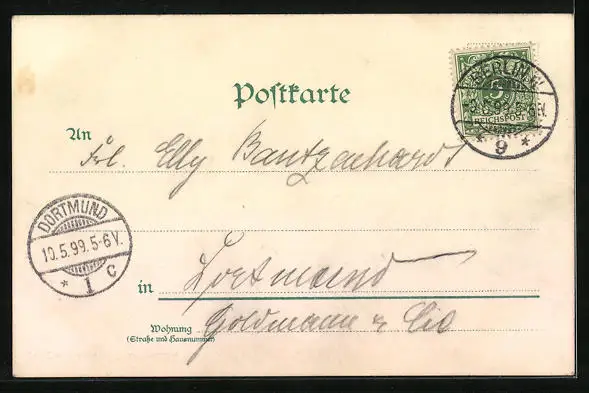 Postkarte
BERLIN W
5
REICHSPOST
9
An
Frl. Elly Bantzenhardt
DORTMUND
10.5.99.5-6V.
1 c
in Dortmund
Wohnung
(Straße und Hausnummer)
Goldmann & Cie